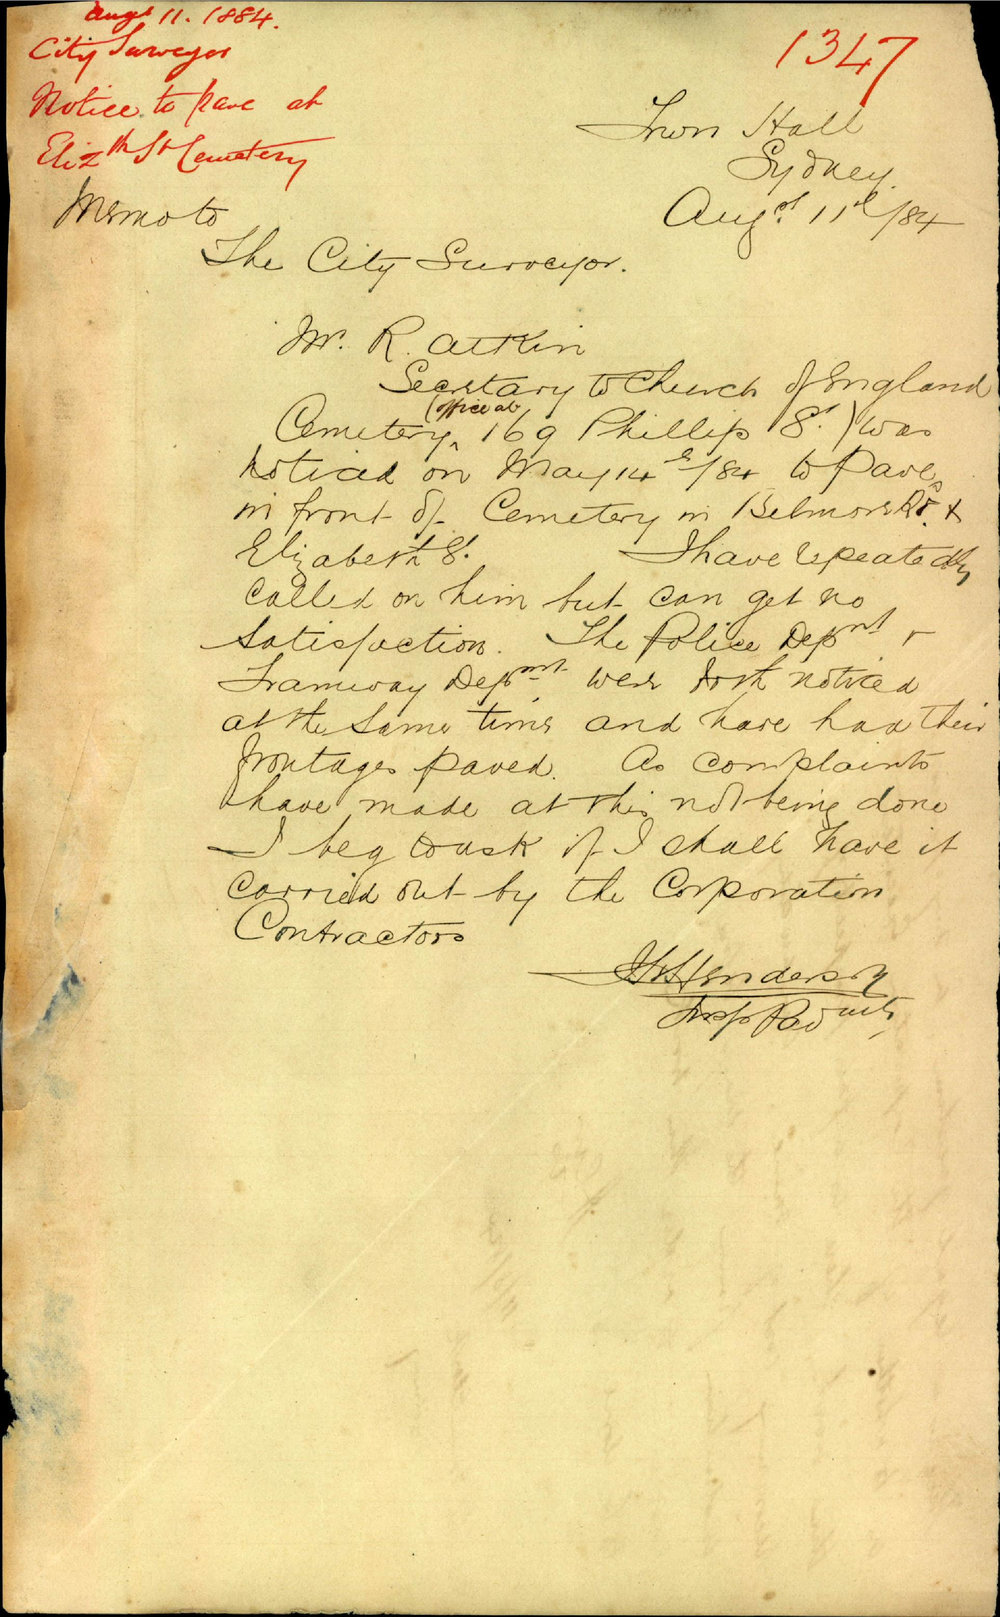 Augt 11. 1884.
City Surveyor
Notice to pave at
Elizth St Cemetery
1347
Town Hall
Sydney
Augst 11th/84
Memo to
The City Surveyor.
Mr. R. Aitkin
Secretary to Church of England
Cemetery (office at 169 Phillip St.) was
noticed on May 14th/84 to pave
in front of Cemetery in Belmore Rd. &
Elizabeth St. I have repeatedly
called on him but can get no
satisfaction. The Police Depmnt &
Tramway Depmnt were both noticed
at the same time and have had their
frontages paved. As complaints
have made at this not being done
I beg to ask if I shall have it
carried out by the Corporation
Contractors
Henderson
Insp Pavmts